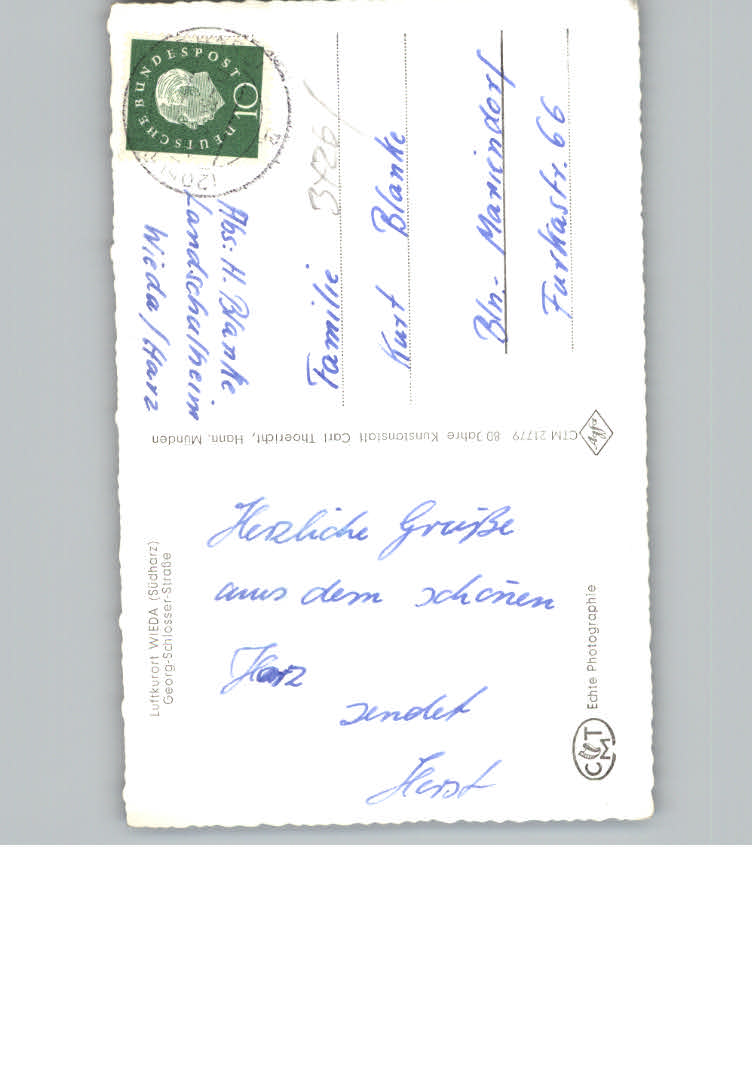 Luftkurort WIEDA (Südharz)
Georg-Schlosser-Straße
Herzliche Grüße
aus dem schönen
Harz
sendet
Horst
Echte Photographie
CMT
CTM 21779 80 Jahre Kunstanstalt Carl Thoericht, Hann. Münden
Agfa
DEUTSCHE BUNDESPOST
10
(20
Abs: H. Blanke
Landschulheim
Wieda/Harz
3426/
Familie
Kurt Blanke
Bln.- Mariendorf
Furkastr. 66